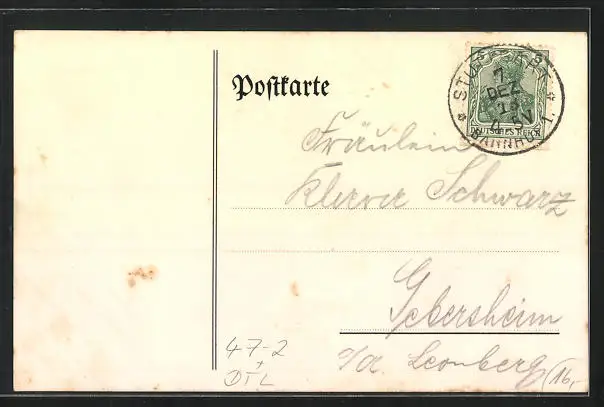 Postkarte
STUTTGART
7.
DEZ
13
4-5V
BAHNHOF 1.
DEUTSCHES REICH
Fräulein
Schwarz
Gebersheim
o/a. Leonberg
47-2
+
DTL
16,-